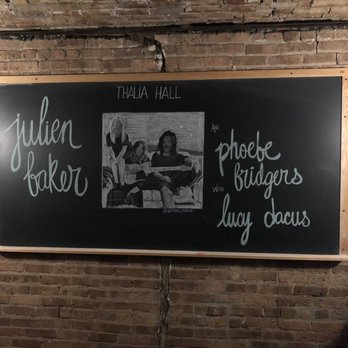 THALIA HALL
julien
baker
And
phoebe
bridgers
with
lucy dacus